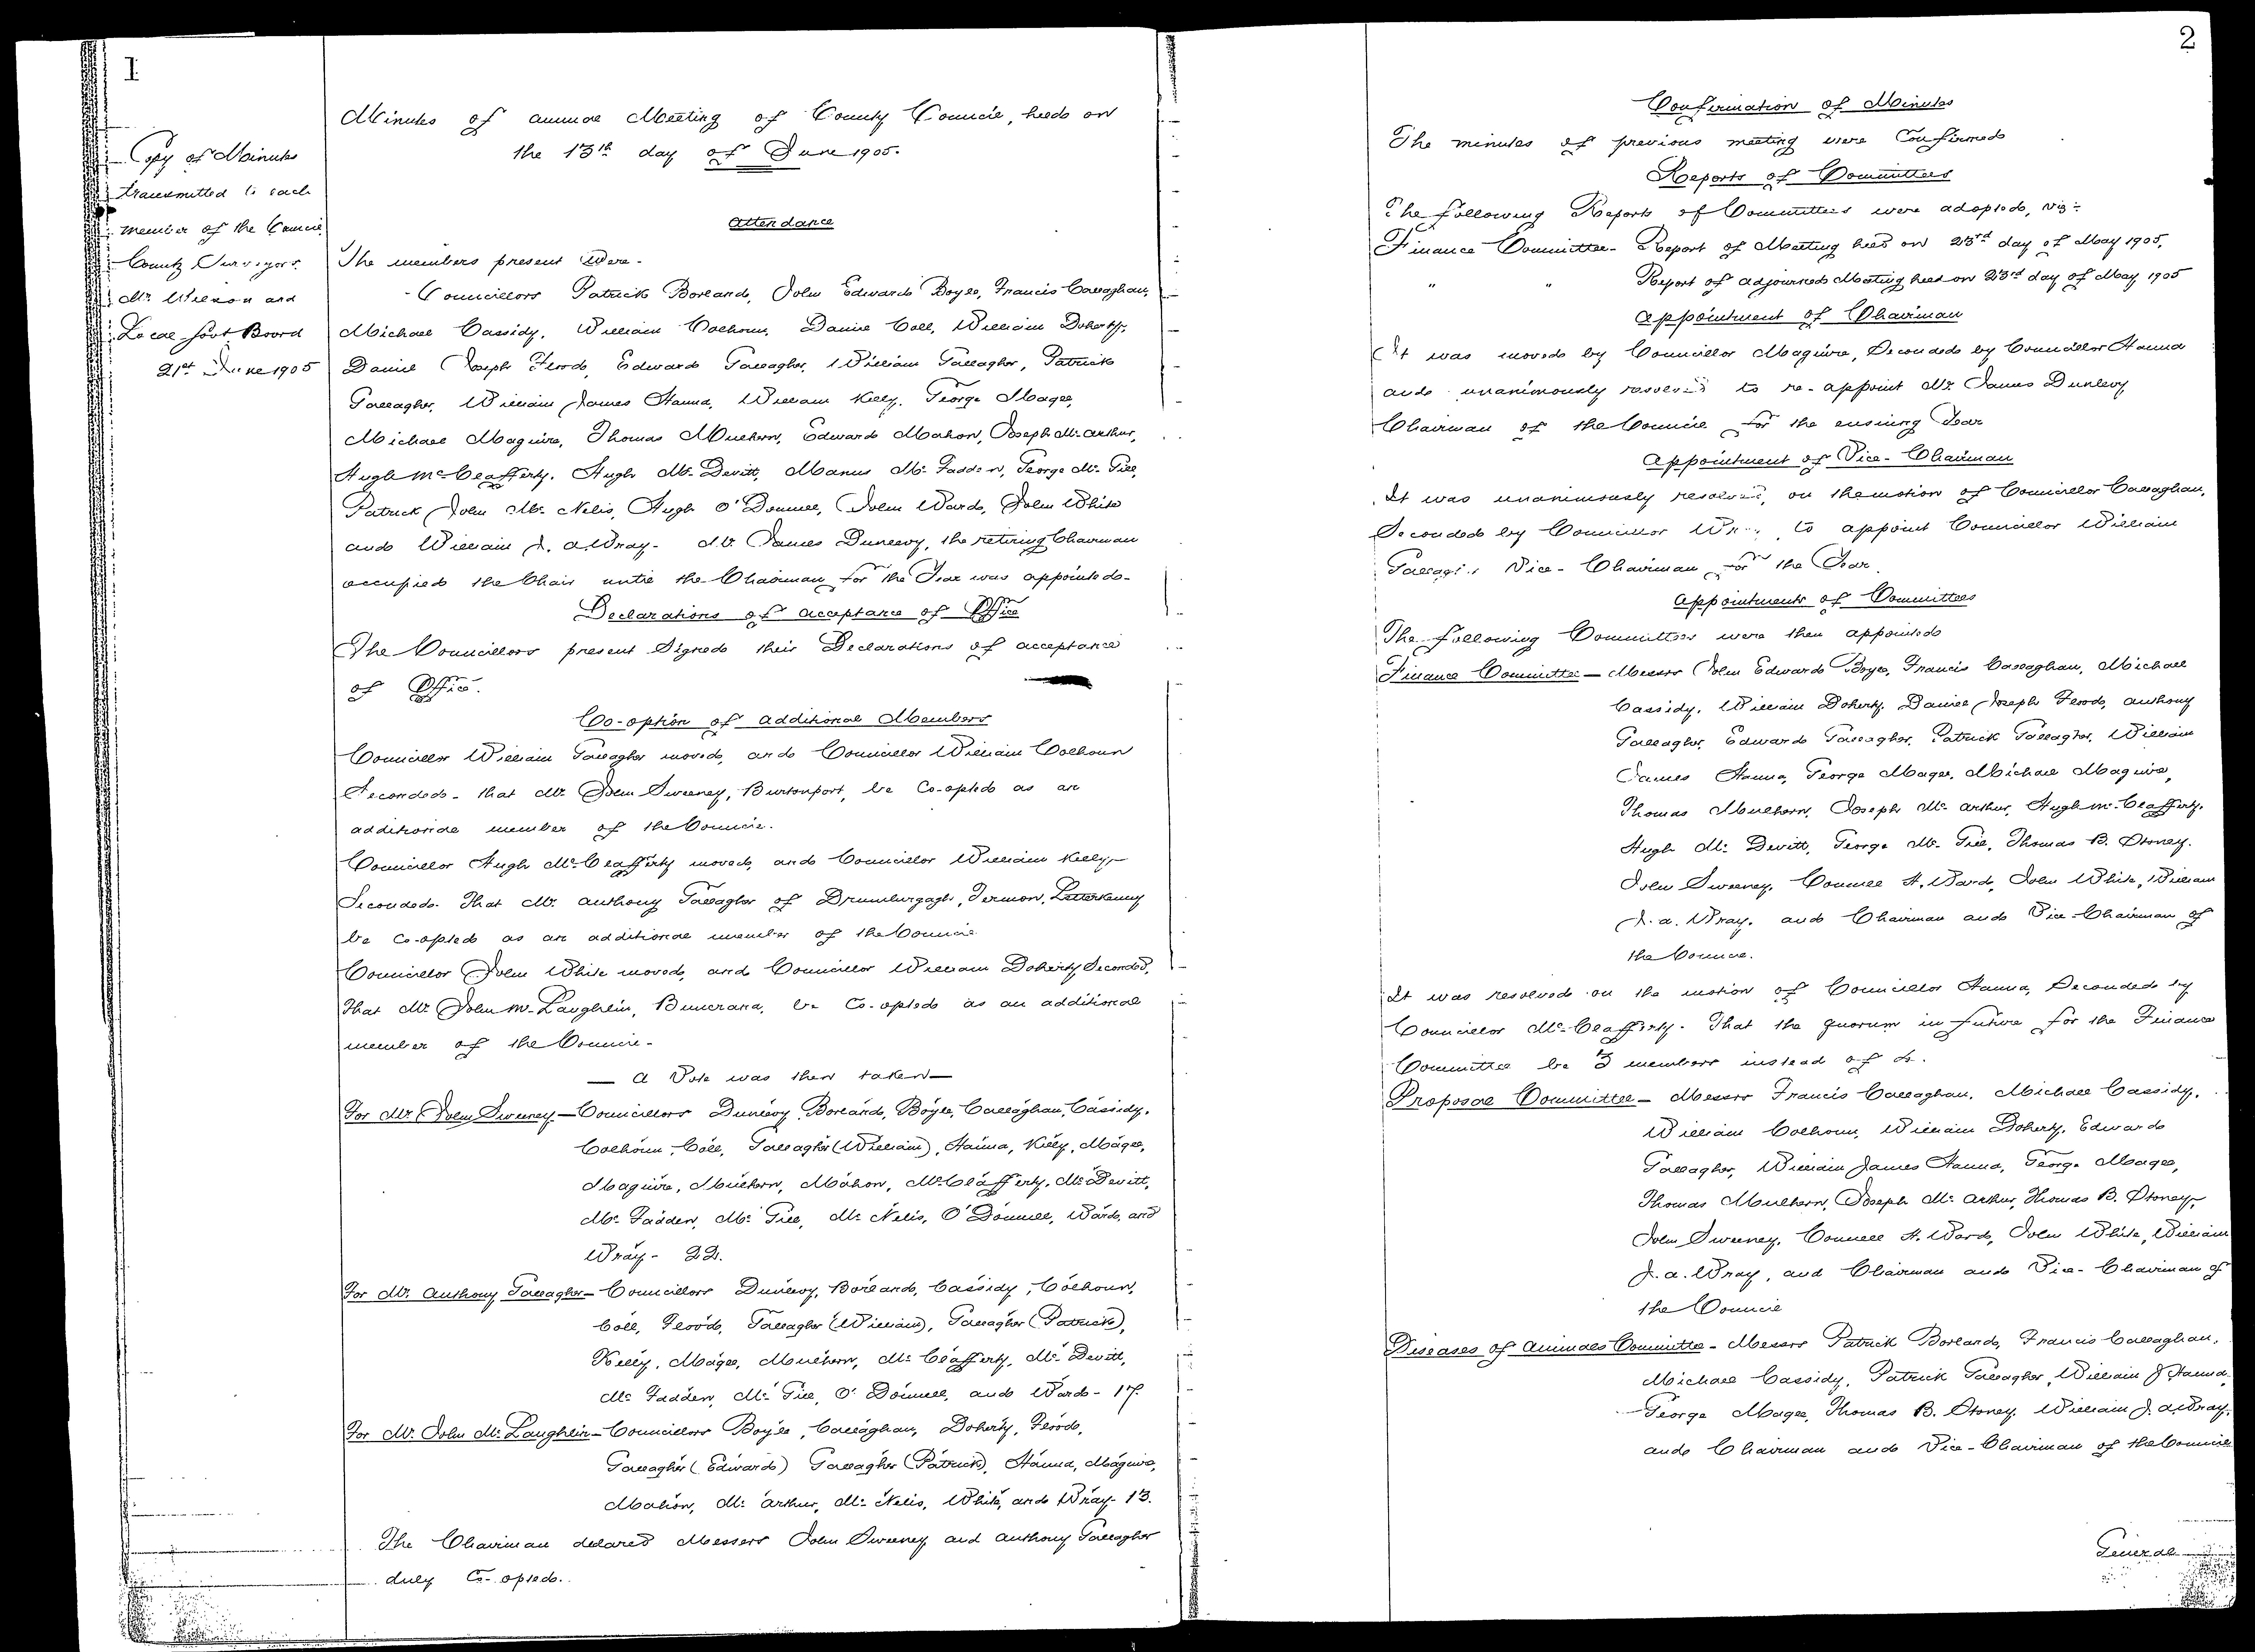 1
Copy of Minutes
transmitted to each
member of the Council
County Surveyors
Mr Wilson and
Local Govt Board
21st June 1905
Minutes of annual Meeting of County Council, held on
the 13th day of June 1905.
Attendance
The members present were-
Councillors Patrick Borland, John Edward Boyle, Francis Callaghan,
Michael Cassidy, William Colhoun, Daniel Coll, William Doherty,
Daniel Joseph Flood, Edward Gallagher, William Gallagher, Patrick
Gallagher, William James Hanna, William Kelly, George Magee,
Michael Maguire, Thomas Mulhern, Edward Mahon, Joseph Mc Arthur,
Hugh Mc Clafferty, Hugh Mc Devitt, Manus Mc Fadden, George Mc Gill,
Patrick John Mc Nelis, Hugh O'Donnell, John Ward, John White
and William J. A. Wray- Mr James Dunlevy, the retiring Chairman
occupied the Chair until the Chairman for the Year was appointed-
Declarations of acceptance of Office
The Councillors present Signed their Declarations of acceptance
of Office.
Co-option of additional Members
Councillor William Gallagher moved, and Councillor William Colhoun
Seconded- that Mr John Sweeney, Burtonport, be Co-opted as an
additional member of the Council.
Councillor Hugh Mc Clafferty moved, and Councillor William Kelly,
Seconded- That Mr Anthony Gallagher of Drumlurgagh, Termon, Letterkenny
be co-opted as an additional member of the Council
Councillor John White moved, and Councillor William Doherty Seconded,
that Mr John Mc Laughlin, Buncrana, be Co-opted as an additional
member of the Council-
— A Vote was then taken—
For Mr John Sweeney—Councillors Dunlevy, Borland, Boyle, Callaghan, Cassidy,
Colhoun, Coll, Gallagher (William), Hanna, Kelly, Magee,
Maguire, Mulhern, Mahon, Mc Clafferty, Mc Devitt,
Mc Fadden, Mc Gill, Mc Nelis, O'Donnell, Ward, and
Wray- 22.
For Mr. Anthony Gallagher— Councillors Dunlevy, Borland, Cassidy, Colhoun,
Coll, Flood, Gallagher (William), Gallagher (Patrick),
Kelly, Magee, Mulhern, Mc Clafferty, Mc Devitt,
Mc Fadden, Mc Gill, O'Donnell, and Ward- 17.
For Mr. John Mc Laughlin—Councillors Boyle, Callaghan, Doherty, Flood,
Gallagher (Edward) Gallagher (Patrick), Hanna, Maguire,
Mahon, Mc Arthur, Mc Nelis, White, and Wray- 13.
The Chairman declared Messers John Sweeney and Anthony Gallagher
duly Co-opted.
2
Confirmation of Minutes
The minutes of previous meeting were Confirmed
Reports of Committees
The following Reports of Committees were adopted, viz:
Finance Committee- Report of Meeting held on 23rd day of May 1905.
" " Report of adjourned Meeting held on 23rd day of May 1905
Appointment of Chairman
It was moved by Councillor Maguire, Seconded by Councillor Hanna
and unanimously resolved to re-appoint Mr. James Dunlevy
Chairman of the Council for the ensuing Year
Appointment of Vice-Chairman
It was unanimously resolved, on the motion of Councillor Callaghan,
Seconded by Councillor to appoint Councillor William
Gallagher Vice-Chairman for the Year.
Appointments of Committees
The following Committees were then appointed
Finance Committee— Messrs John Edward Boyle, Francis Callaghan, Michael
Cassidy, William Doherty, Daniel Joseph Flood, Anthony
Gallagher, Edward Gallagher, Patrick Gallagher, William
James Hanna, George Magee, Michael Maguire,
Thomas Mulhern, Joseph Mc Arthur, Hugh Mc Clafferty,
Hugh Mc Devitt, George Mc Gill, Thomas B. Stoney,
John Sweeney, Connell H. Ward, John White, William
J. A. Wray, and Chairman and Vice-Chairman of
the Council.
It was resolved on the motion of Councillor Hanna, Seconded by
Councillor Mc Clafferty- That the quorum in future for the Finance
Committee be 3 members instead of
Proposal Committee— Messrs Francis Callaghan, Michael Cassidy,
William Colhoun, William Doherty, Edward
Gallagher, William James Hanna, George Magee,
Thomas Mulhern, Joseph Mc Arthur, Thomas B. Stoney,
John Sweeney, Connell H. Ward, John White, William
J. A. Wray, and Chairman and Vice-Chairman of
the Council
Diseases of Animals Committee- Messrs Patrick Borland, Francis Callaghan,
Michael Cassidy, Patrick Gallagher, William J Hanna,
George Magee, Thomas B. Stoney, William J. A. Wray,
and Chairman and Vice-Chairman of the Council
General